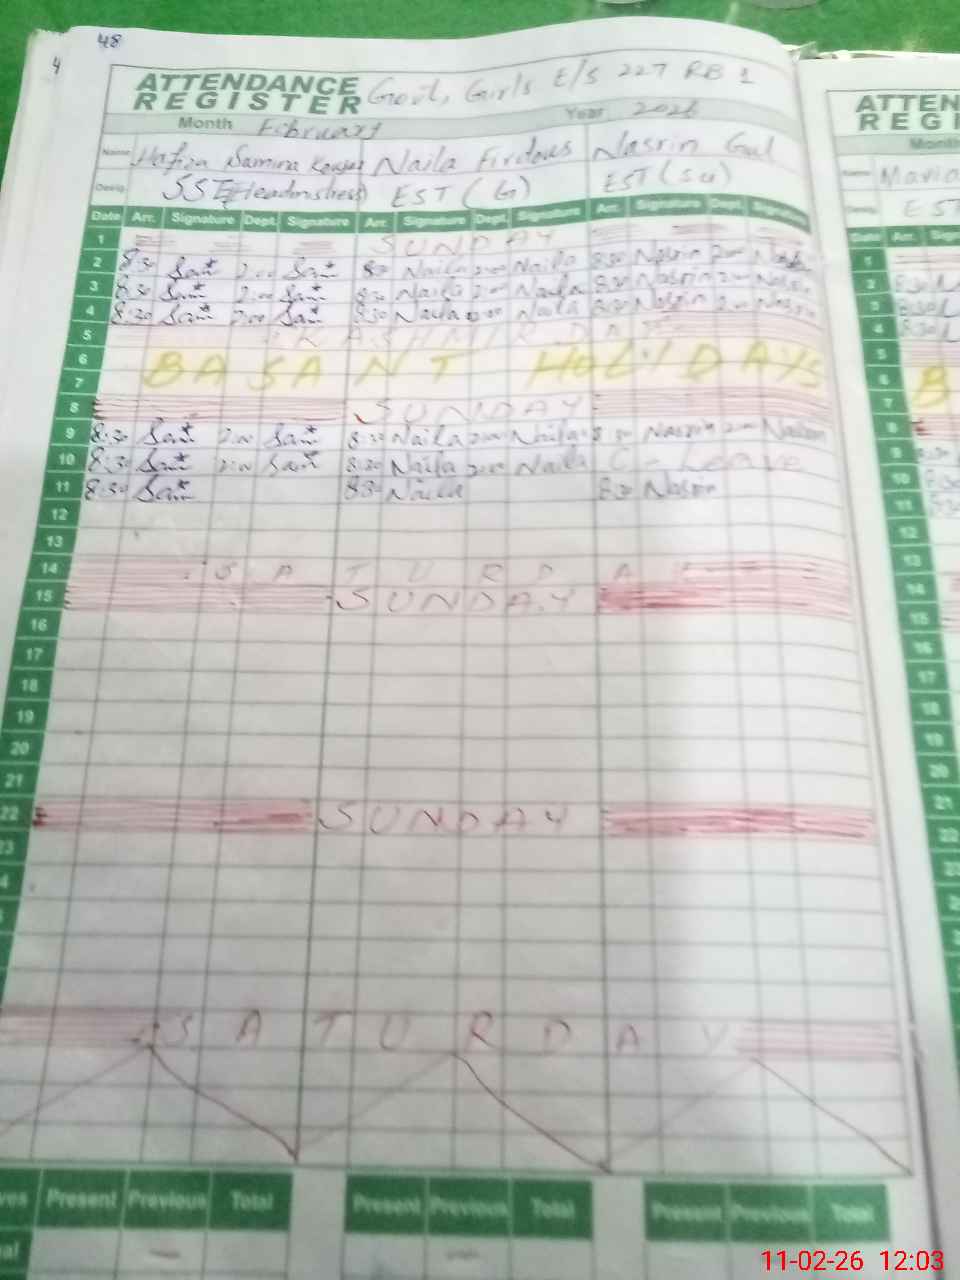 48
4
ATTENDANCE REGISTER Govt, Girls E/S 227 RB 1
Month February Year 2026
Name Hafiza Samina Kousar Naila Firdous Nasrin Gul
Desig. SST (Headmistress) EST (G) EST (
Date Arr. Signature Dept. Signature Arr. Signature Dept. Signature Arr. Signature Dept. Signature
1 SUNDAY
2 8:30 2:00 Naila 2:00 Naila 8:30 Nasrin 2:00 Nasrin
3 8:30 2:00 8:30 Naila 2:00 Naila 8:30 Nasrin 2:00 Nasrin
4 8:30 2:00 8:30 Naila 2:00 Naila 8:30 Nasrin 2:00 Nasrin
5 KASHMIR DAY
6 BASANT HOLYDAYS
7
8 SUNDAY
9 8:30 2:00 8:30 Naila 2:00 Naila 8:30 Nasrin 2:00 Nasrin
10 8:30 2:00 8:30 Naila 2:00 Naila C - Leave
11 8:30 8:30 Naila 8:30 Nasrin
12
13
14 SATURDAY
15 SUNDAY
16
17
18
19
20
21
22 SUNDAY
23
4
SATURDAY
ves Present Previous Total Present Previous Total Present Previous Total
ual
ATTEN
REGI
Month
Name Maria
Desig. EST
Date Arr. Sig
1
2 8:30
3 8:30
4 8:30
5
6 B
7
8
9 8:30
10 8:30
11 8:30
12
13
14
15
16
17
18
19
20
21
22
23
11-02-26 12:03